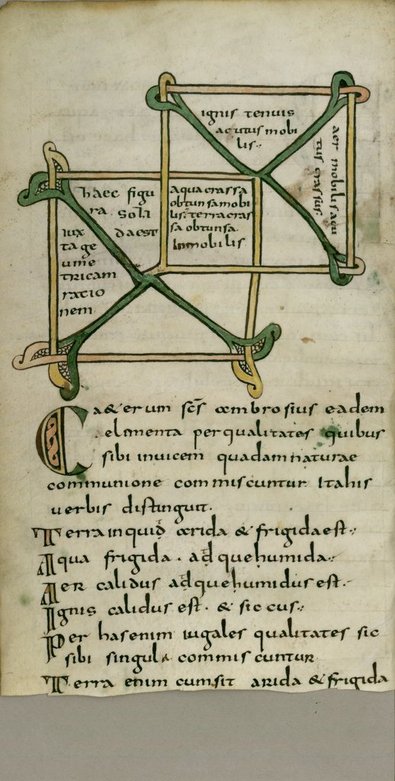 ignis tenuis
acutus mobi
lis
aer mobilis acu
tus crassus
haec figu
ra soli
da est
iux
ta ge
ume
tricam
ratio
nem
aqua crassa
obtunsa mobi
lis terra cras
sa obtunsa
inmobilis
Ca&erum scs ambrosius eadem
elimenta per qualitates quibus
sibi invicem quadam naturae
communione commiscuntur Italiis
verbis distinguit.
Terra inquid arida & frigida est
Aqua frigida. adque humida
Aer calidus adque humidus est
Ignis calidus est. & siccus
Per has enim iugales qualitates sic
sibi singula commiscuntur
Terra enim cum sit arida & frigida